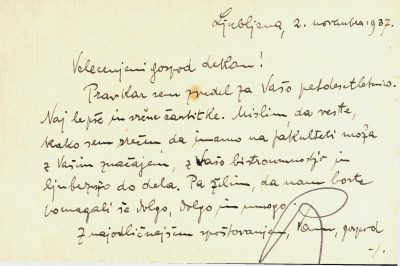 Ljubljana, 2. novembra 1937.
Velecenjeni gospod dekan!
Pravkar sem zvedel za Vašo petdesetletnico.
Najlepše in srčne čestitke. Mislim da veste,
kako sem srečen, da imamo na fakulteti moža
z Vašim značajem, z Vašo bistroumnostjo in
ljubeznijo do dela. Pa želim, da nam boste
pomagali še dolgo, dolgo in mnogo.
Z najodličnejšim spoštovanjem, Vam, gospod
-/.